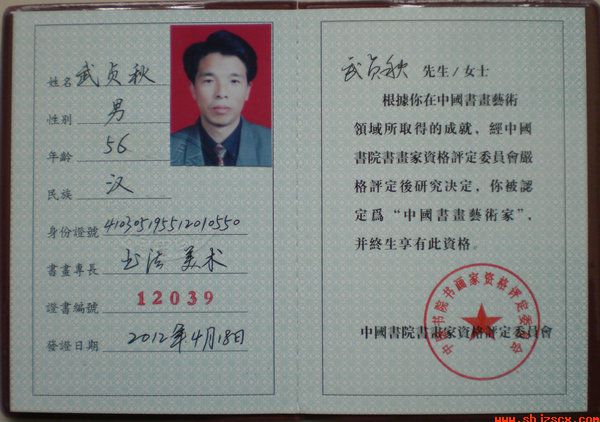 姓名 武贞秋
性別 男
年齡 56
民族 汉
身份證號 410305195512010550
書畫專長 书法 美术
證書編號 12039
發證日期 2012年4月18日
武贞秋 先生/女士
根據你在中國書畫藝術
領域所取得的成就，經中國
書院書畫家資格評定委員會嚴
格評定後研究决定，你被認
定爲“中國書畫藝術家”，
并終生享有此資格。
中國書院書畫家資格評定委員會
中国书院书画家资格评定委员会
www.shjzscx.com